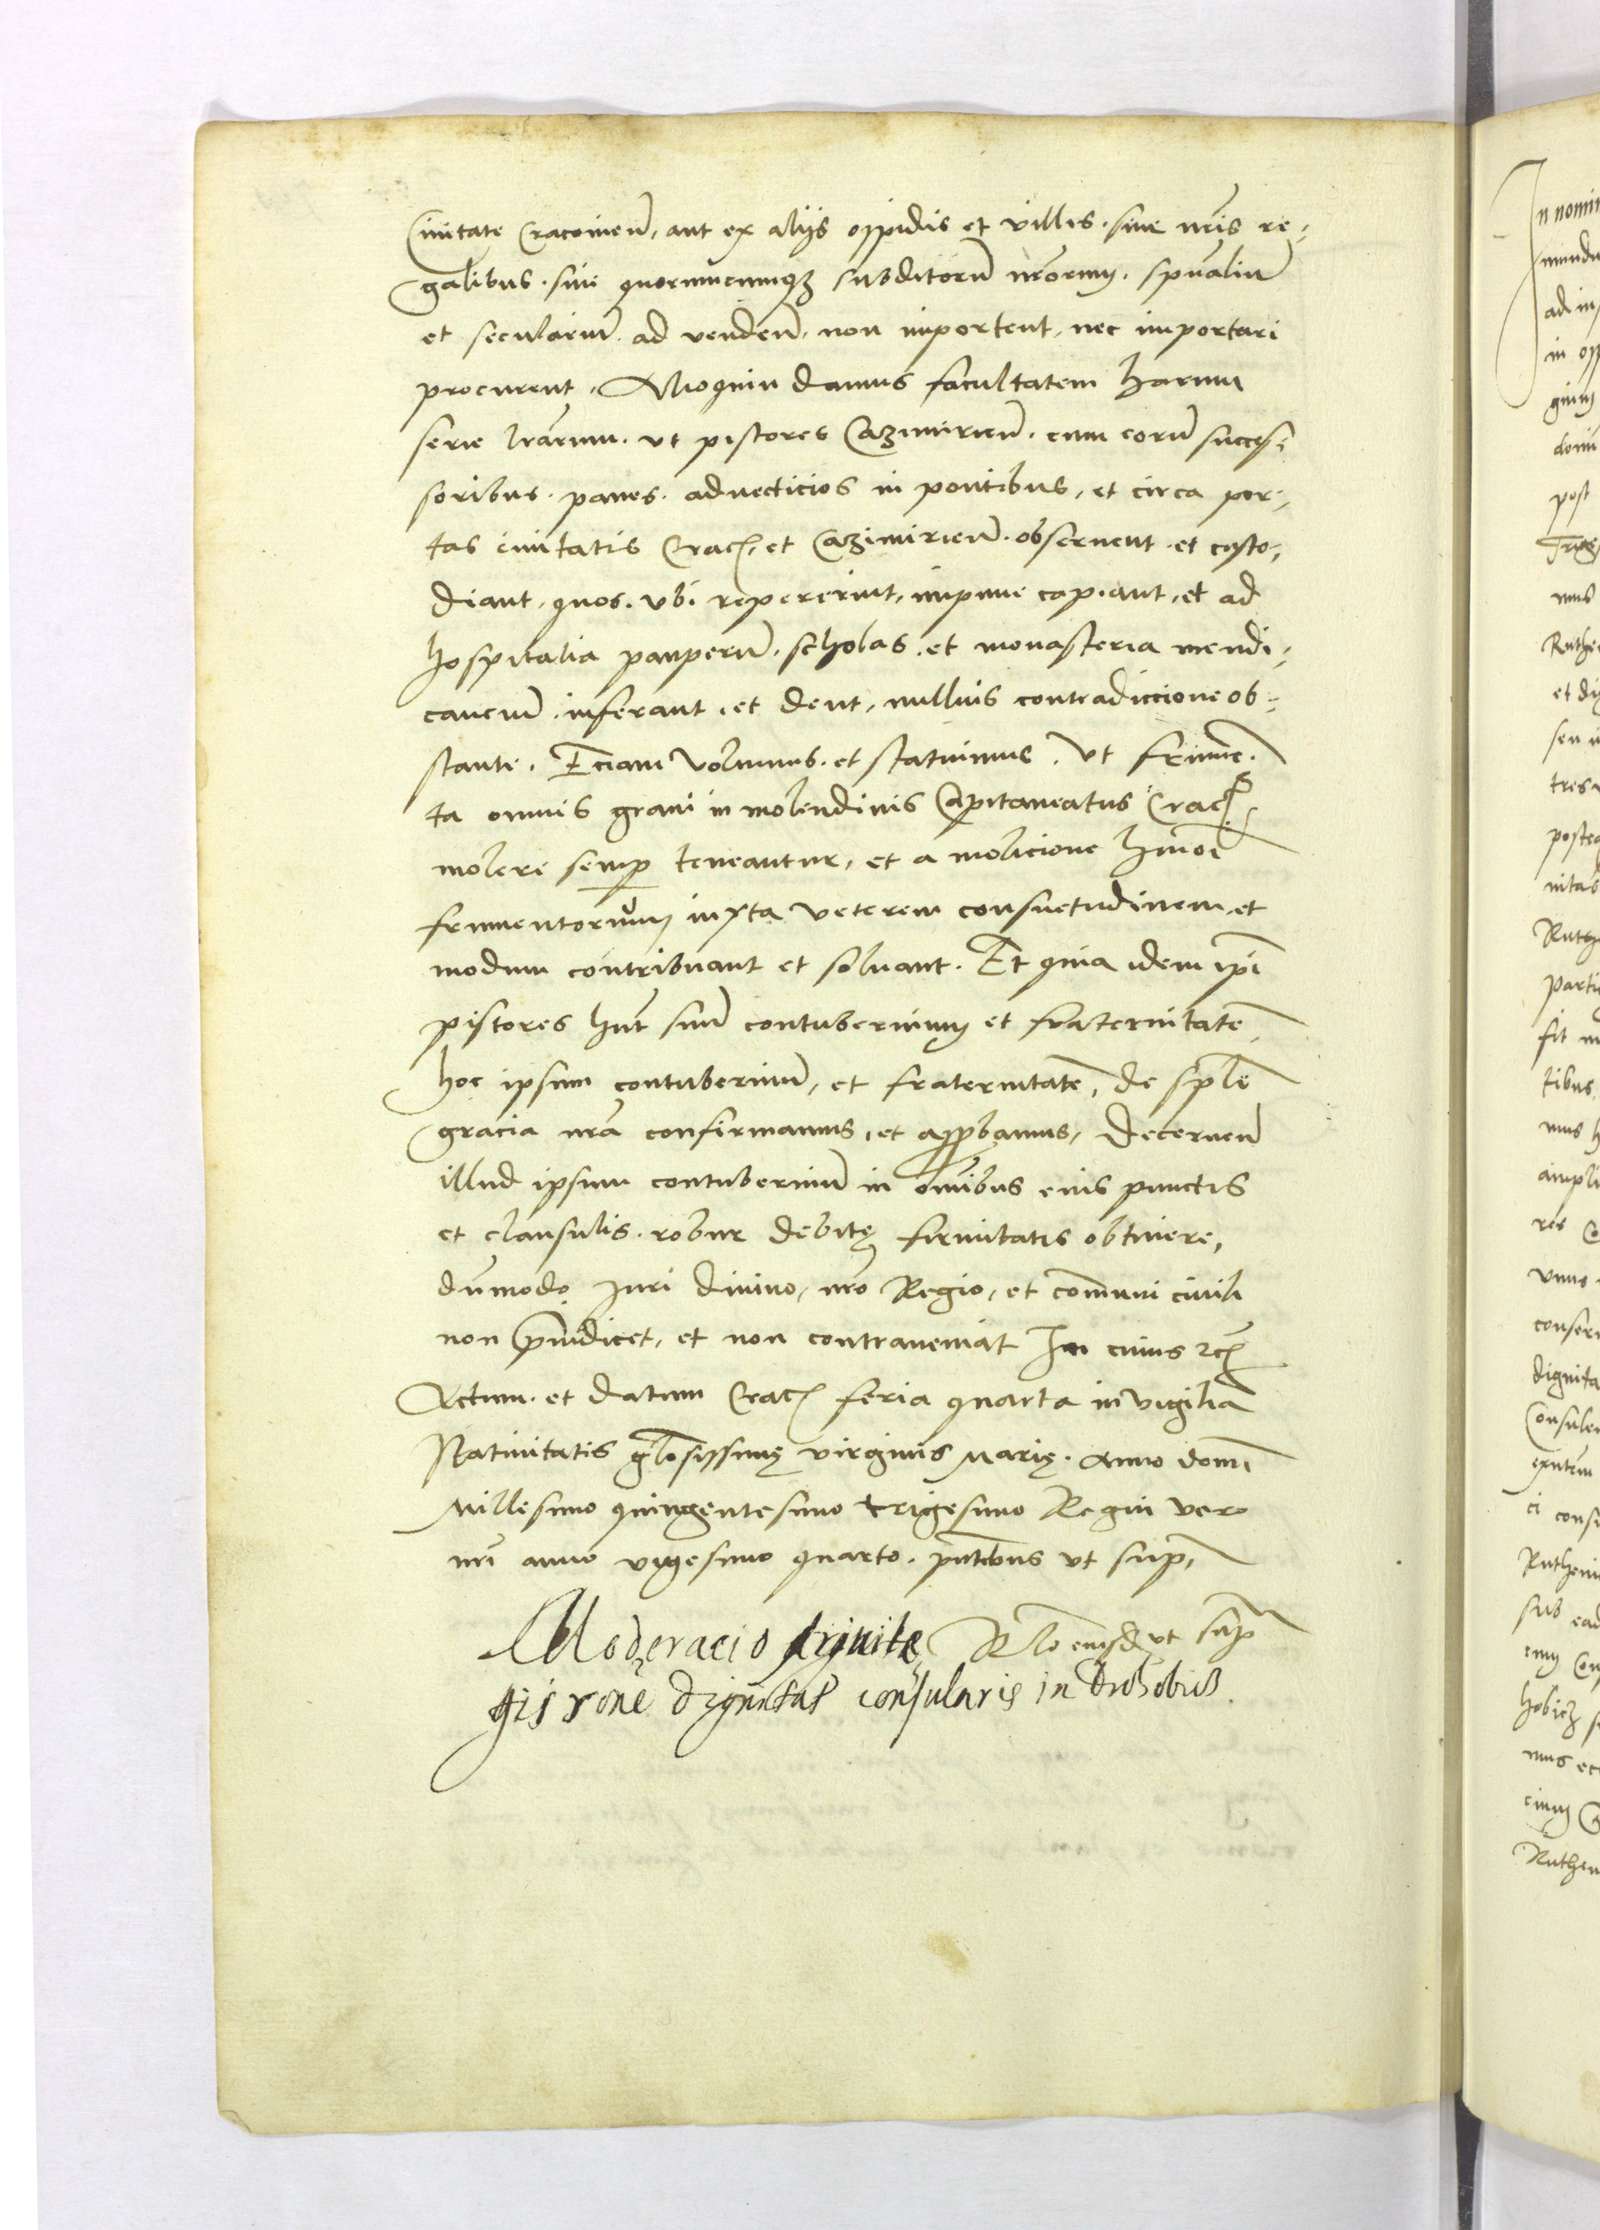 Civitate Cracovień, aut ex alijs oppidis et villis. sive nr̄is re-
galibus. sive quorumcumq3 subditorū nr̄orum. spūaliū
et seculariū. ad vendeń. non importent, nec importari
procurent. Alioquin damus facultatem harum
serie lr̄arum. vt pistores Cazimirień. cum eorū succes-
soribus. panes. advecticios in pontibus, et circa por-
tas civitatis Crac, et Cazimirień. observent. et custo-
diant, quos. vbi repererint, impune capiant, et ad
hospitalia pauperū. scholas. et monasteria mendi-
canciū. inferant. et dent, nullius contradiccione ob-
stante. Eciam volumus. et statuimus. Vt frumē-
ta omnis grani in molendinis Capitaneatus Crac
molere semp teneantur, et a molicione hm̄oi
frumentorum iuxta veterem consuetudinem. et
modum contribuant et solvant. Et quia idem ip̄i
pistores hn̄t suū contubernium et fraternitatē
hoc ipsum contuberniū, et fraternitatē, de sp̄li
gracia nr̄a confirmamus, et approbamus, Decerneń
illud ipsum contuberniū in om̄ibus eius punctis
et clausulis. robur debitę firmitatis obtinere,
dūmodo Iuri divino, nr̄o Regio, et com̄uni civili
non p̄iudicet, et non contraveniat In cuius rei
Actum. et datum Crac feria quarta in vigilia
Nativitatis gl̄osissimę virginis Marię. Anno domī
Millesimo quingentesimo trigesimo Regni vero
nr̄i anno vigesimo quarto. pn̄tibus vt sup̄
Moderacio Rl̄o eiusd vt sup̄
rōne dignitat consularis in Drohobicz